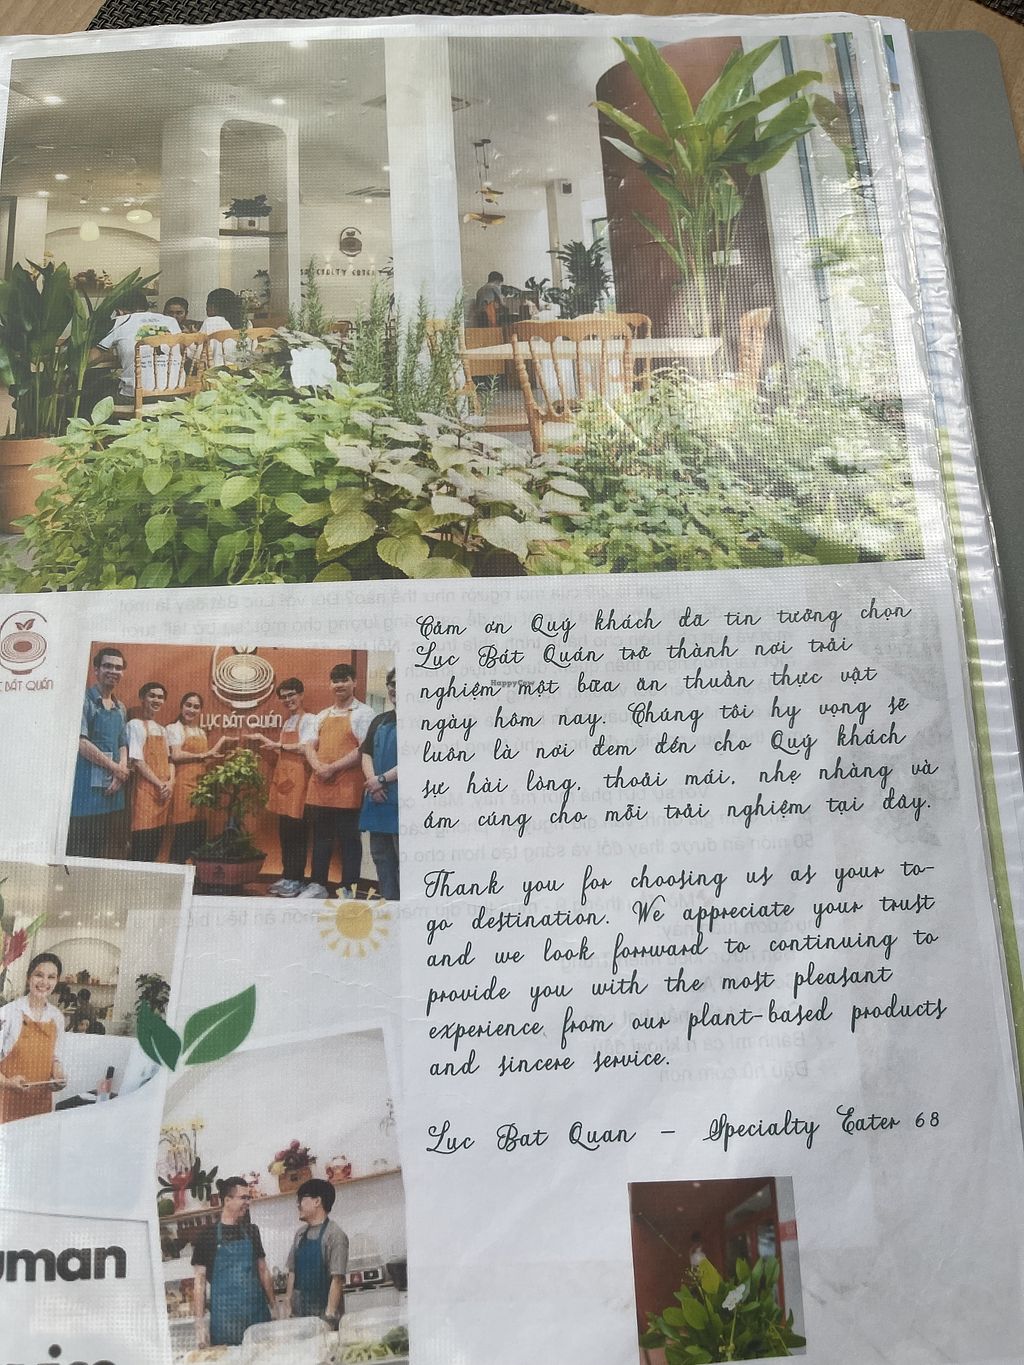 SPECIALTY EATERY
LỤC BÁT QUÁN
LỤC BÁT QUÁN
Cảm ơn Quý khách đã tin tưởng chọn
Lục Bát Quán trở thành nơi trải
nghiệm một bữa ăn thuần thực vật
ngày hôm nay. Chúng tôi hy vọng sẽ
luôn là nơi đem đến cho Quý khách
sự hài lòng, thoải mái, nhẹ nhàng và
ấm cúng cho mỗi trải nghiệm tại đây.
HappyCow
Thank you for choosing us as your to-
go destination. We appreciate your trust
and we look forward to continuing to
provide you with the most pleasant
experience from our plant-based products
and sincere service.
Luc Bat Quan - Specialty Eater 68
uman